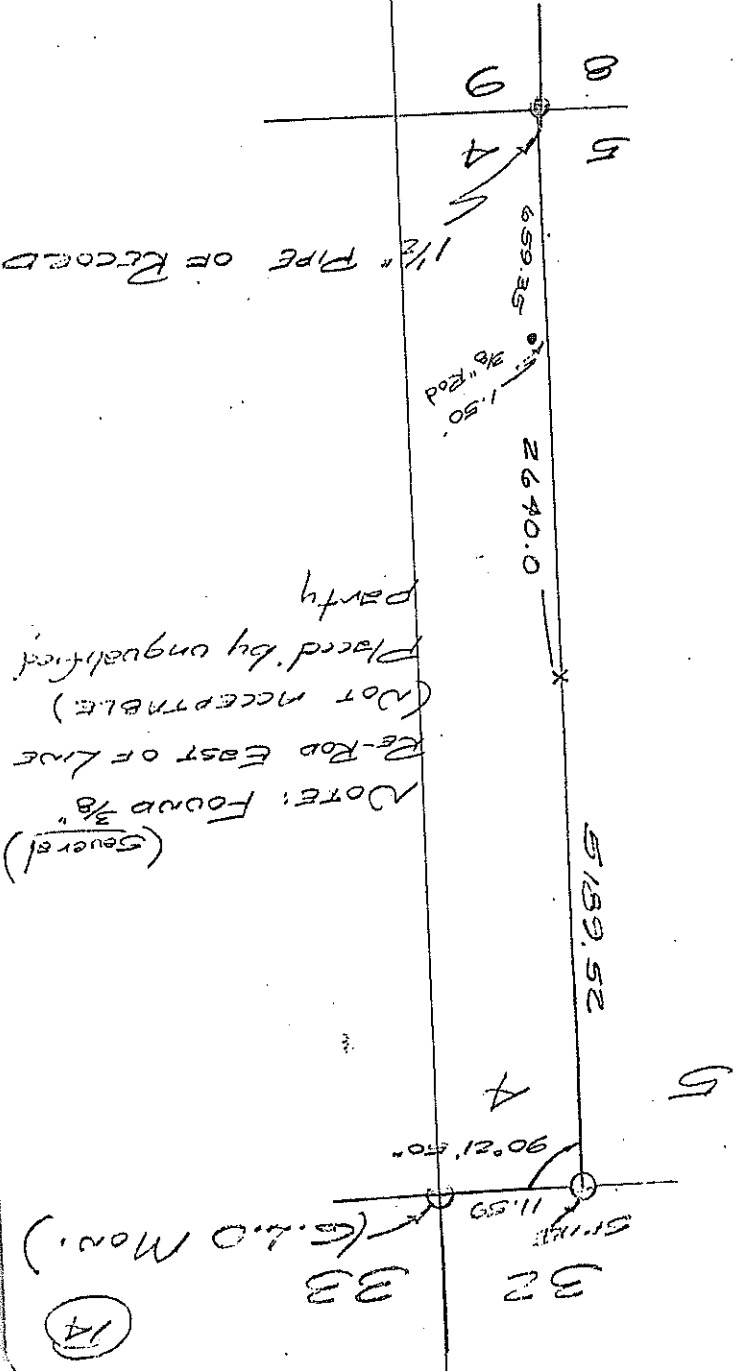 14
32 33
Spike
(G.L.O Mon.)
11.59
90°21'50"
5 4
5189.52
(Several)
NOTE: FOUND 3/8"
RE-ROD EAST OF LINE
(NOT ACCEPTABLE)
Placed by unqualified
party
2640.0
1.50'
3/8" ROD
659.35
1 1/2" PIPE OF RECORD
5 4
8 9